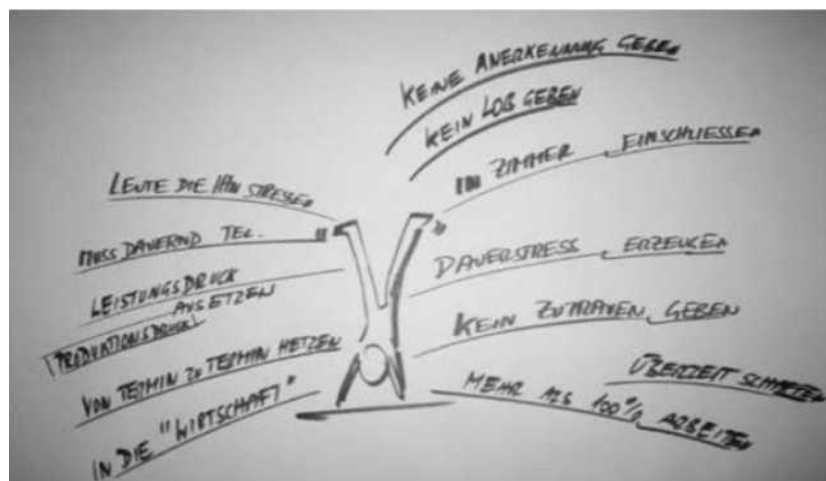 KEINE ANERKENNUNG GEBEN
KEIN LOB GEBEN
IM ZIMMER EINSCHLIESSEN
DAUERSTRESS ERZEUGEN
KEIN ZUTRAUEN GEBEN
ÜBERZEIT SCHAFFEN
MEHR ALS 100% ARBEITEN
LEUTE DIE IHN STRESSEN
MUSS DAUERND TEL.
LEISTUNGSDRUCK
AUSSETZEN
(PRODUKTIONSDRUCK)
VON TERMIN ZU TERMIN HETZEN
IN DIE "WIRTSCHAFT"